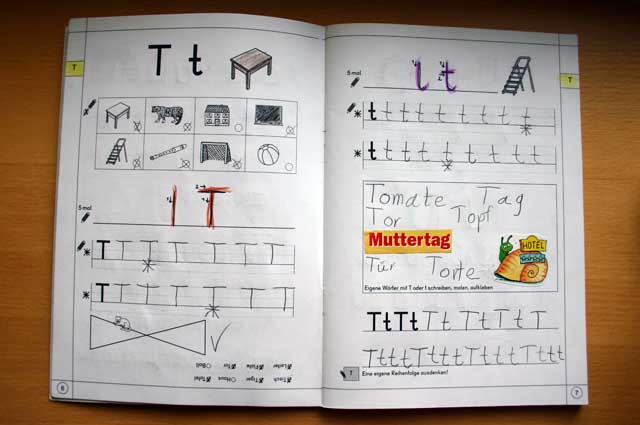 T
T t
5 mal
T
T T T T T T T T
T T T T T T T T
Tisch Tiger Haus Tafel
Leiter Flöte Tor Ball
6
T
5 mal
t
t t t t t t t t
t t t t t t t t
Tomate Tag
Tor Topf
Muttertag
HOTEL
Tür Torte
Eigene Wörter mit T oder t schreiben, malen, aufkleben
TtTtTt Tt Tt T
TtttTtttTtttTttt
T Eine eigene Reihenfolge ausdenken!
7